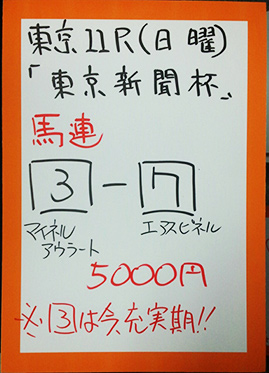 東京11R(日曜)
「東京新聞杯」
馬連
3-7
マイネル
アウラート
エアスピネル
5000円
※3は今、充実期!!